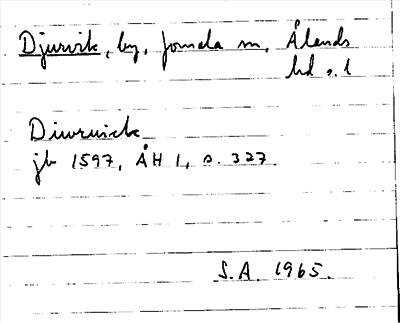 Djurvik, by, Jomala sn, Ålands
hd s. 1
Diurwick
jb 1597, ÅH 1, s. 327.
S.A. 1965.